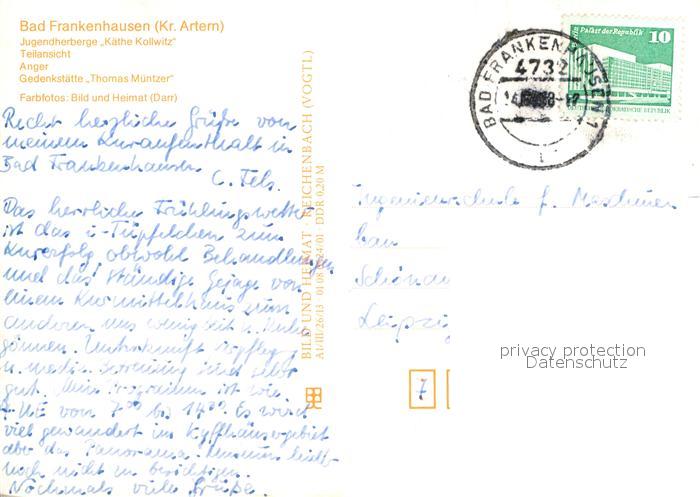 Bad Frankenhausen (Kr. Artern)
Jugendherberge „Käthe Kollwitz"
Teilansicht
Anger
Gedenkstätte „Thomas Müntzer"
Farbfotos: Bild und Heimat (Darr)
Recht herzliche Grüße von
meinem Kuraufenthalt in
Bad Frankenhausen
C. Fels.
Das herrliche Frühlingswetter
ist das i-Tüpfelchen zum
Kurerfolg, obwohl Behandlungen
und das ständige Gejage von
einem Kurmittelhaus zum
anderen uns wenig Zeit u. Ruhe
gönnen. Unterkunft, Verpflegung
u. mediz. Betreuung sind sehr
gut. Mein Programm ist wie
von 7⁰⁰ bis 14⁰⁰. Es wird
viel gewandert im Kyffhäusergebiet
aber das Panorama-Museum
noch nicht zu besichtigen.
Nochmals viele Grüße.
BILD UND HEIMAT REICHENBACH (VOGTL)
A1/III/26/13 DDR 0,20 M
BAD FRANKENHAUSEN 1
4732
Palast der Republik
10
Ingenieurschule f. Maschinen
bau
Schönau
Leipzig
7
privacy protection
Datenschutz